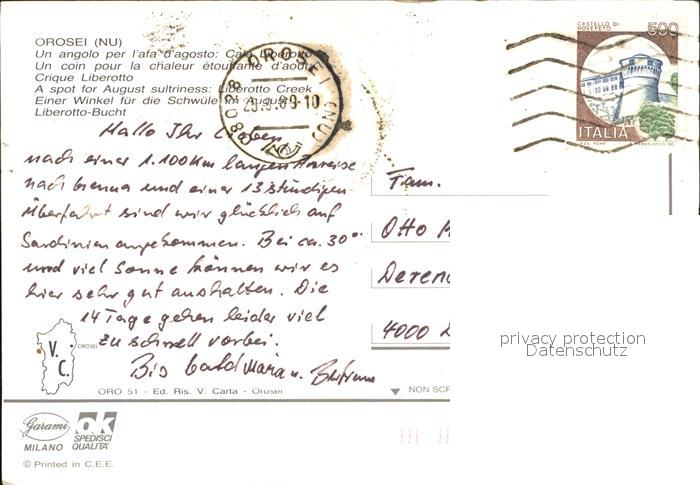 OROSEI (NU)
Un angolo per l'afa d'agosto: Cala Liberotto
Un coin pour la chaleur étouffante d'août:
Crique Liberotto
A spot for August sultriness: Liberotto Creek
Einer Winkel für die Schwüle in August:
Liberotto-Bucht
08028 OROSEI (NU)
9.89-10
CASTELLO DI
ROVERETO
500
ITALIA
Hallo Ihr Lieben,
nach einer 1.100 km langen Anreise
nach Genua und einer 13 stündigen
Überfahrt sind wir glücklich auf
Sardinien angekommen. Bei ca. 30°
und viel Sonne können wir es
hier sehr gut aushalten. Die
14 Tage gehen leider viel
zu schnell vorbei.
Bis bald Maria u.
Fam.
Otto
Deren
4000
V.
C.
OROSEI
ORO 51 - Ed. Ris. V. Carta - Orosei
NON SCR
privacy protection
Datenschutz
Garami
MILANO
ok
SPEDISCI
QUALITÀ
© Printed in C.E.E.